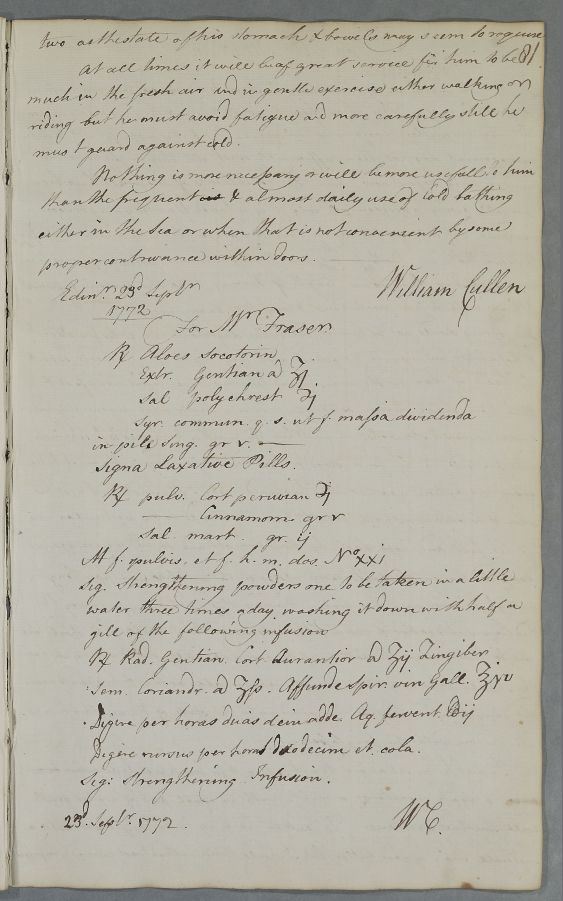 two as the state of his stomach & bowels may seem to require
81
At all times it will be of great service for him to be
much in the fresh air and in gentle exercise either walking or
riding but he must avoid fatigue and more carefully still he
must guard against cold.
Nothing is more necessary or will be more usefull to him
than the frequent & almost daily use of Cold bathing
either in the Sea or when that is not convenient by some
proper contrivance within doors.
William Cullen
Edinr. 23d Septr
1772
For Mr. Fraser
℞ Aloes Socotorin
Extr. Gentian a ʒj
Sal polychrest ʒj
Syr. commun. q. s. ut f. massa dividenda
in pil. sing. gr v.
Signa Laxative Pills.
℞ pulv. Cort peruvian ℈j
— Cinnamom. gr v
Sal. mart. gr. ij
M f. pulvis. et f. h. m. dos. No XXI
Sig. Strengthening powders one to be taken in a little
water three times a day washing it down with half a
gill of the following infusion
℞ Rad. Gentian. Cort Aurantior a ʒij Zingiber
Sem. Coriandr. a ʒſs. Affunde Spir. vin Gall. ℥iv
Digere per horas duas dein adde. Aq. fervent. ℔ij
Digere rursus per horas duodecim et cola.
Sig: Strengthening Infusion.
23d. Septr. 1772.
WC.